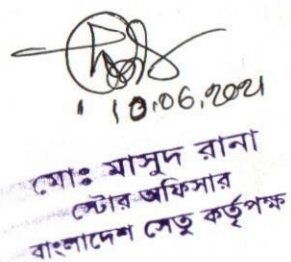 10.06.2021
মোঃ মাসুদ রানা
স্টোর অফিসার
বাংলাদেশ সেতু কর্তৃপক্ষ